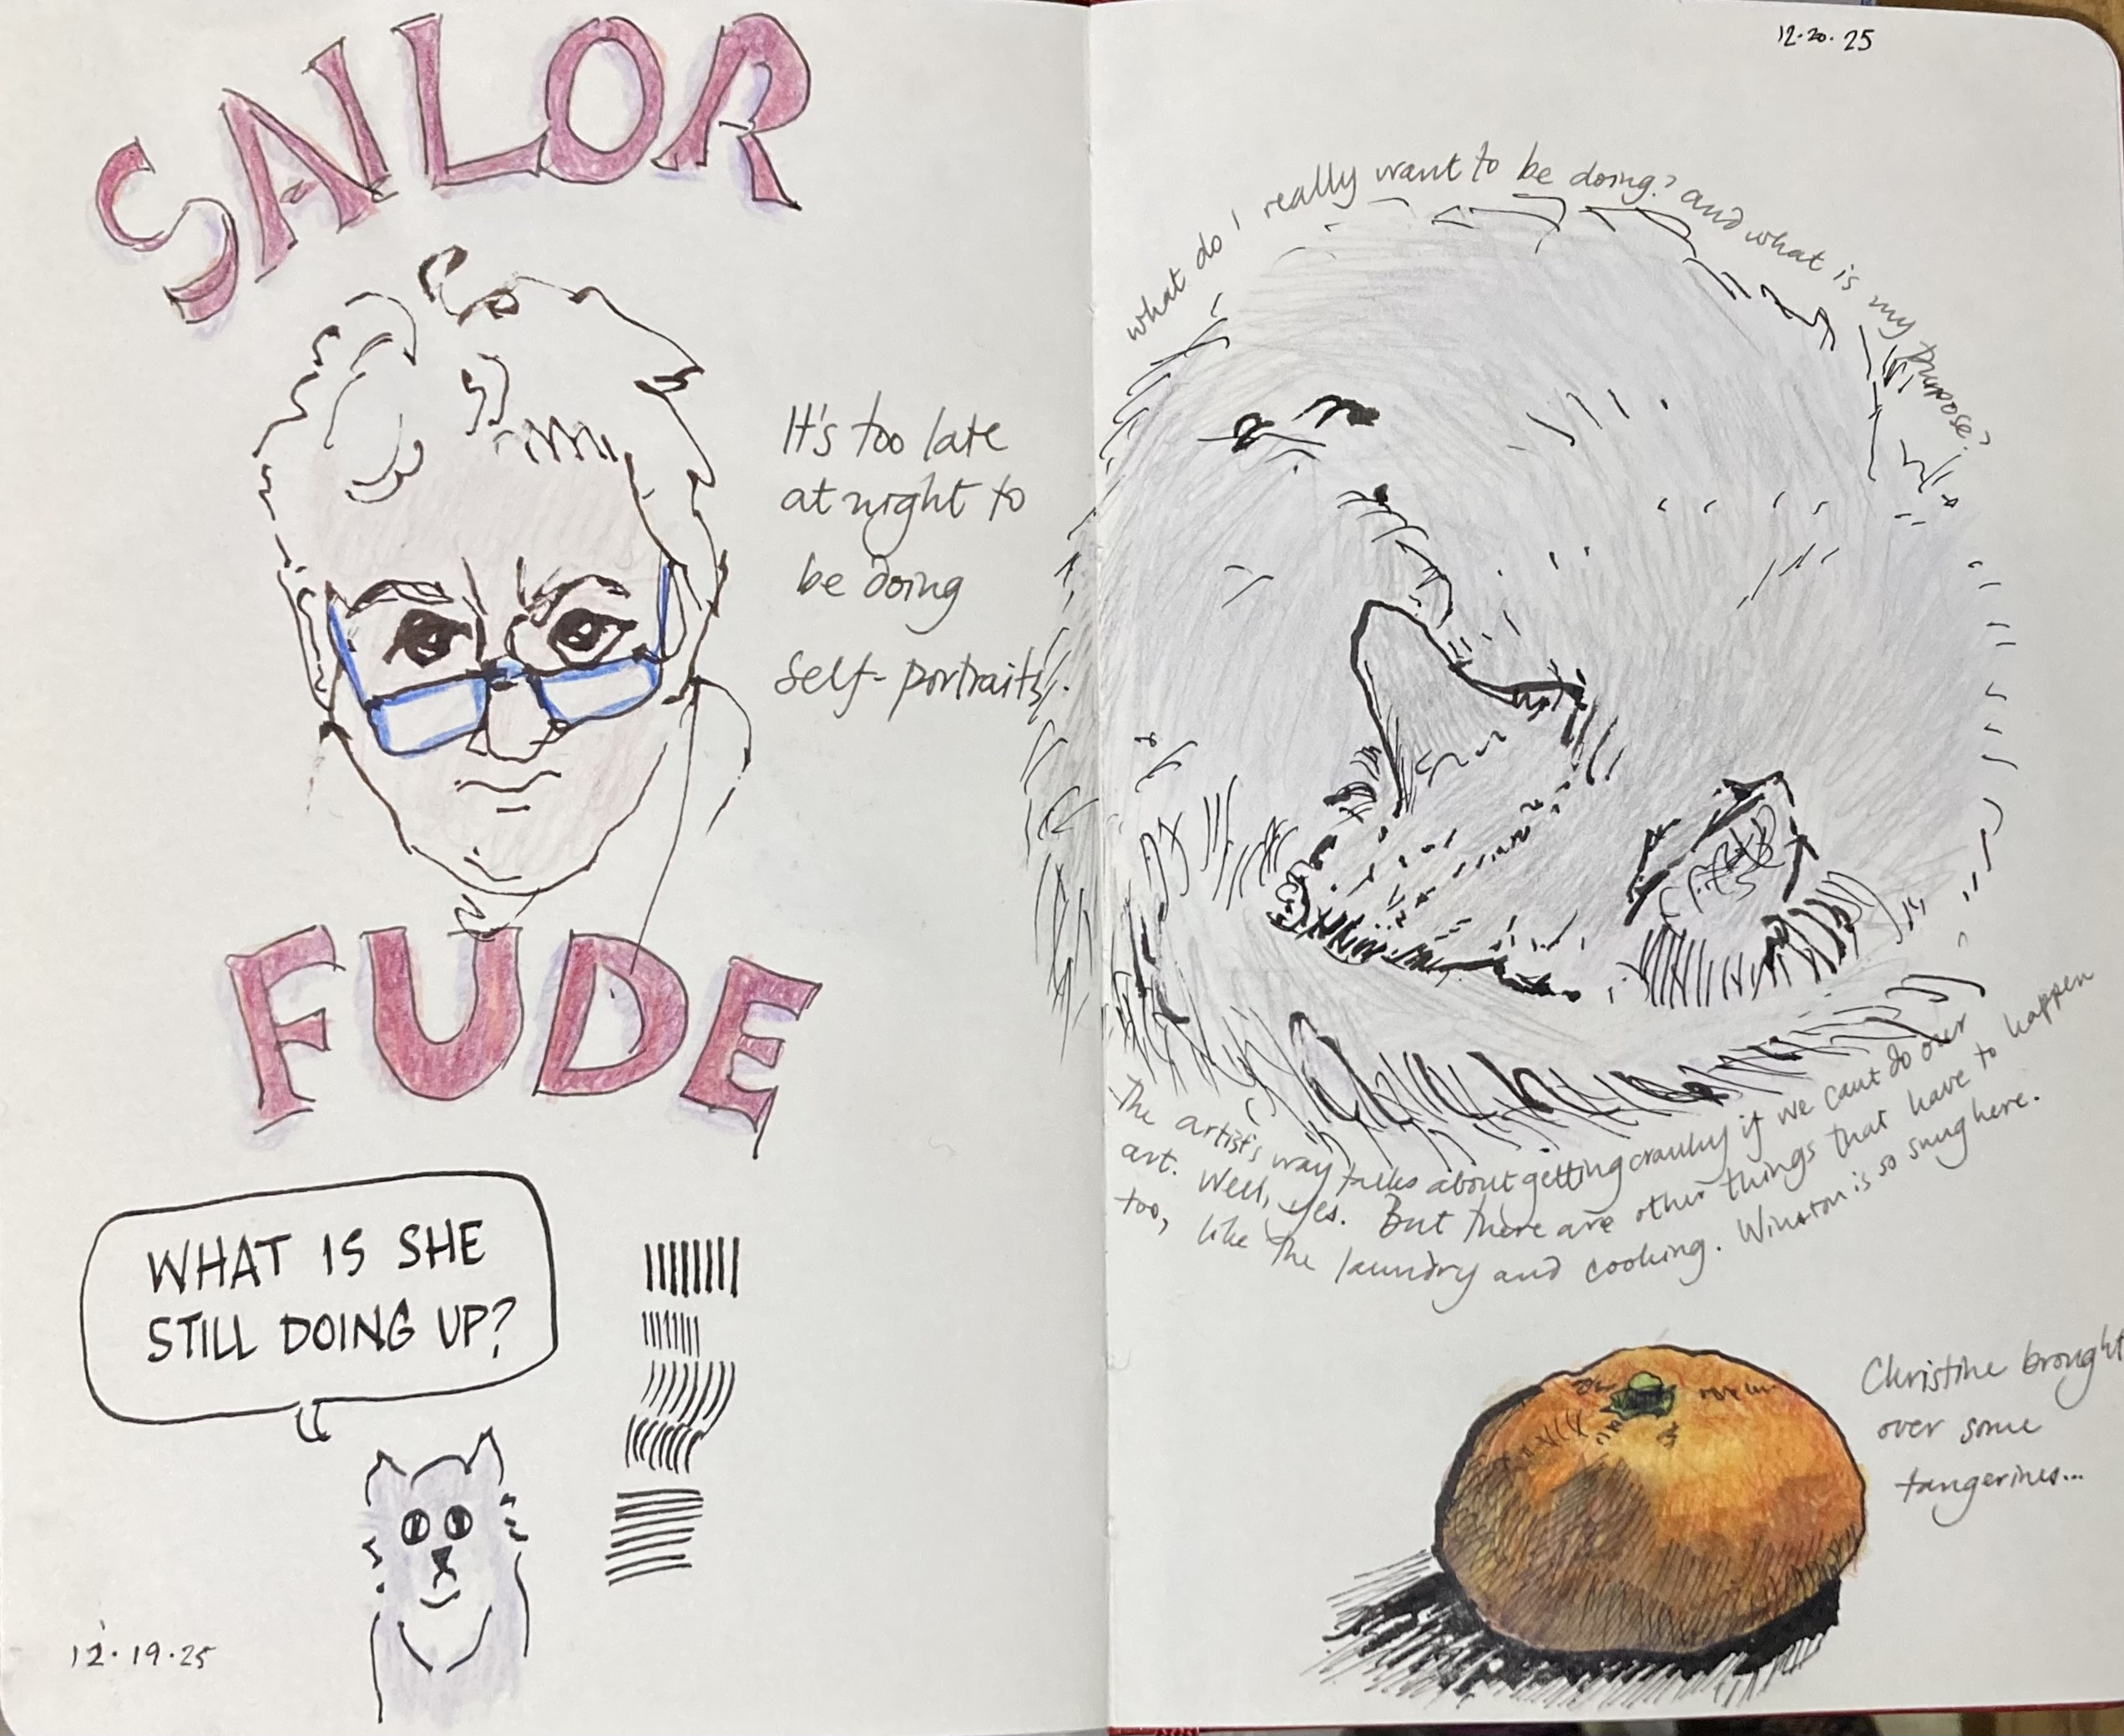 SAILOR
It's too late
at night to
be doing
self-portraits.
FUDE
WHAT IS SHE
STILL DOING UP?
12·19·25
12·20·25
what do I really want to be doing? and what is my purpose?
The artist's way talks about getting cranky if we cant do our
art. Well, yes. But there are other things that have to happen
too, like the laundry and cooking. Winston is so snug here.
Christine brought
over some
tangerines...